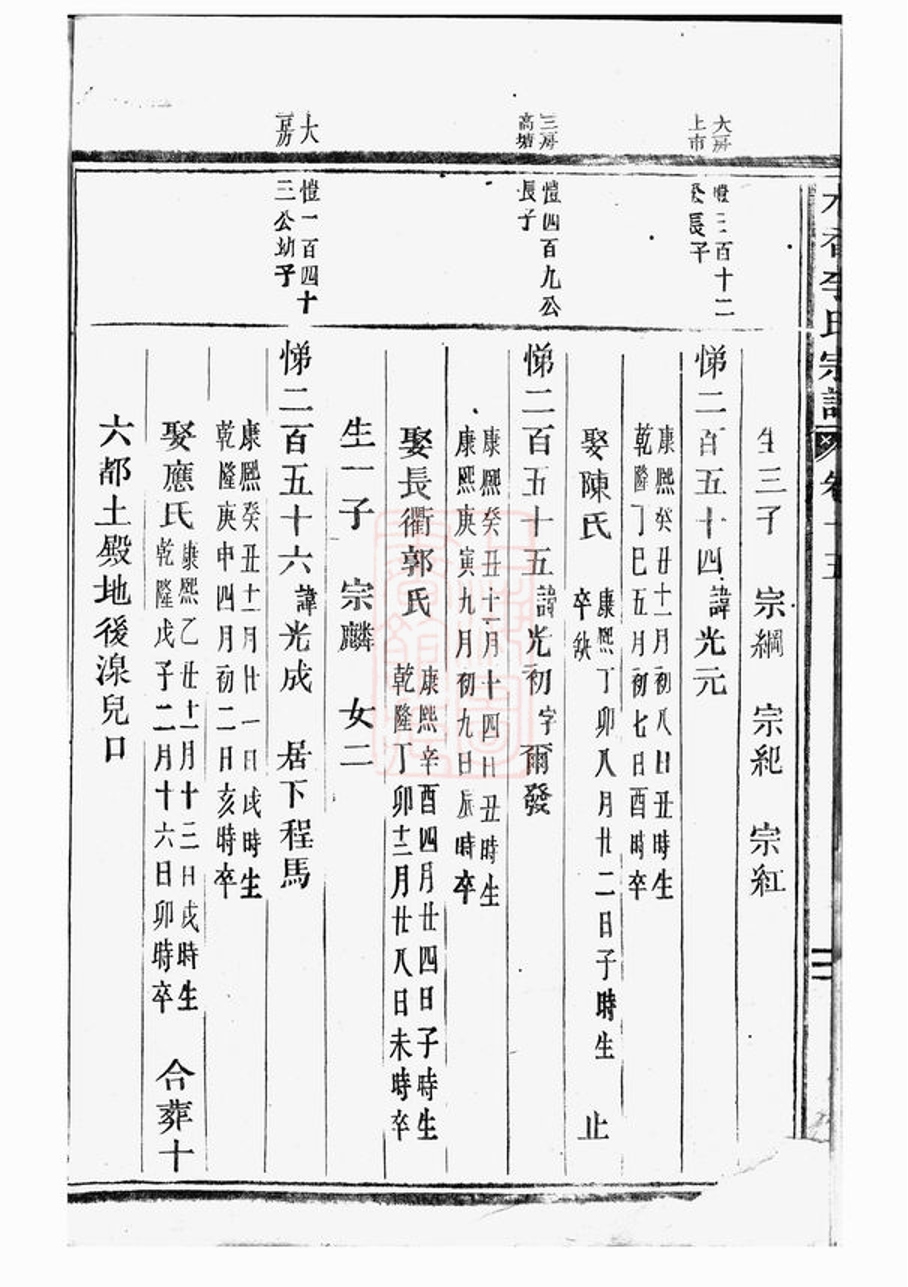 李氏宗譜 卷十五
生三子 宗綱 宗紀 宗紅
大房
上市
三百十二
公長子
悌二百五十四諱光元
康熙癸丑十二月初八日丑時生
乾隆丁巳五月初七日酉時卒
娶陳氏
康熙丁卯八月廿二日子時生
卒缺
止
三房
高塘
愷四百九公
長子
悌二百五十五諱光初字爾發
康熙癸丑十二月十四日丑時生
康熙庚寅九月初九日辰時卒
娶長衢郭氏
康熙辛酉四月廿四日子時生
乾隆丁卯十二月廿八日未時卒
生一子 宗麟 女二
大
房
愷一百四十
三公幼子
悌二百五十六諱光成 居下程馬
康熙癸丑十二月廿一日戌時生
乾隆庚申四月初二日亥時卒
娶應氏
康熙乙丑十二月十三日戌時生
乾隆戊子二月十六日卯時卒
合葬十
六都土殿地後湶兒口